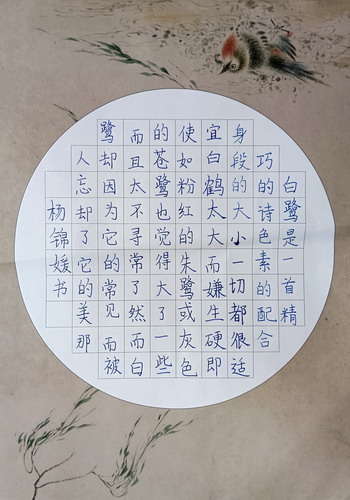 白鹭是一首精
巧的诗色素的配合
身段的大小一切都很适
宜白鹤太大而嫌生硬即
使如粉红的朱鹭或灰色
的苍鹭也觉得大了一些
而且太不寻常了然而白
鹭却因为它的常见而被
人忘却了它的美那
杨锦媛书